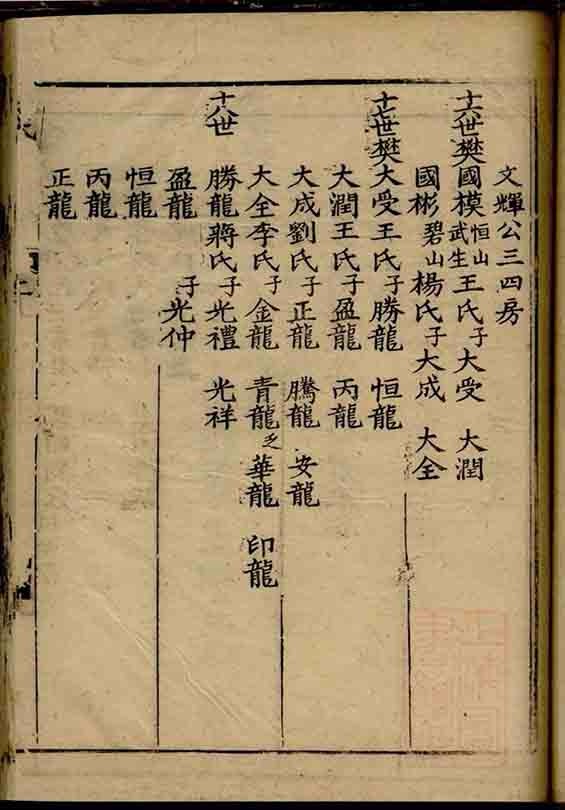 文輝公三四房
十六世樊國模恒山武生王氏子大受 大潤
國彬碧山楊氏子大成 大全
十七世樊大受王氏子勝龍 恒龍
大潤王氏子盈龍 丙龍
大成劉氏子正龍 騰龍 安龍
大全李氏子金龍 青龍 華龍 印龍
十八世 勝龍蔣氏子光禮 光祥
盈龍 子光仲
恒龍
丙龍
正龍